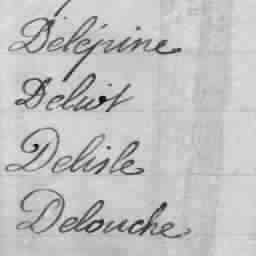 Delépine
Deluit
Delisle
Delouche